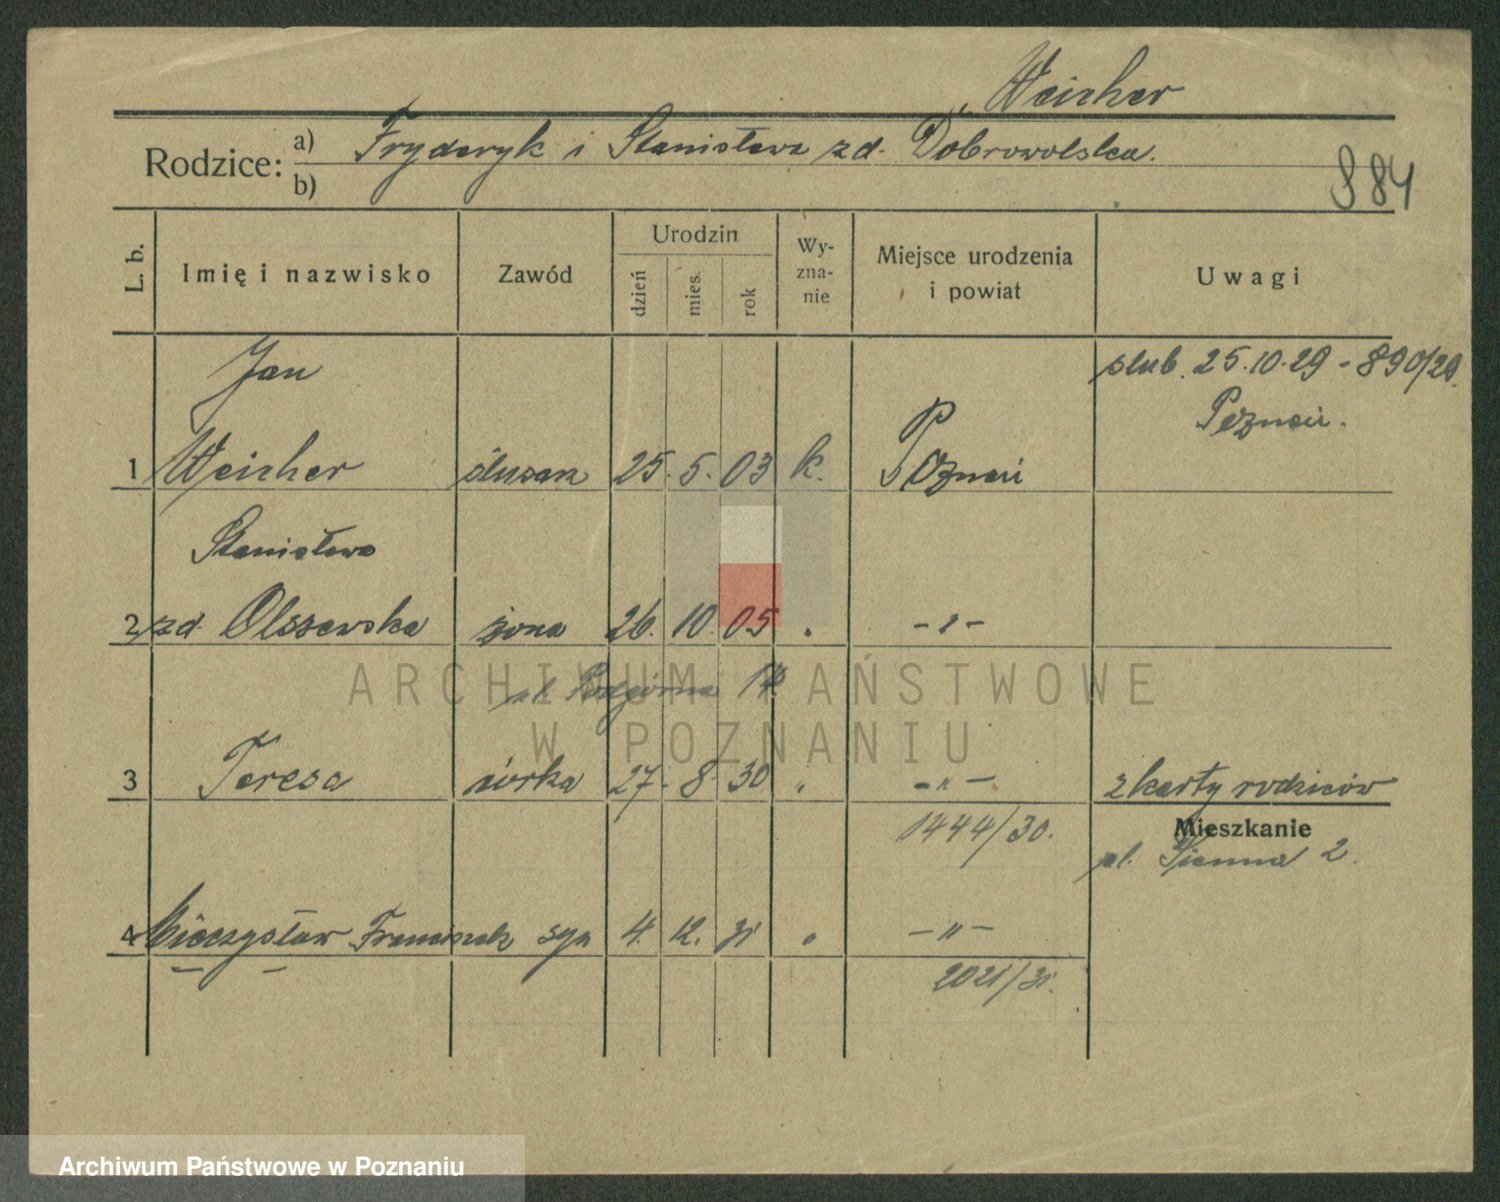 Weicher
Rodzice:
a) Fryderyk i Stanisława zd. Dobrowolska.
b)
884
L. b.
Imię i nazwisko
Zawód
Urodzin
dzień
mies.
rok
Wy-
zna-
nie
Miejsce urodzenia
i powiat
Uwagi
Jan
ślub. 25.10.29 - 890/29.
Poznań.
1 Weicher ślusarz 25. 5. 03 k. Poznań
Stanisława
2 zd. Olszewska żona 26. 10. 05 " - " -
ul. Podgórna
3 Teresa córka 27. 8. 30 " - " - z karty rodziców
1444/30.
Mieszkanie
ul. Sienna 2.
4 Mieczysław Franciszek syn 4. 12. 31 " - " -
2021/31.
ARCHIWUM PAŃSTWOWE
W POZNANIU
Archiwum Państwowe w Poznaniu